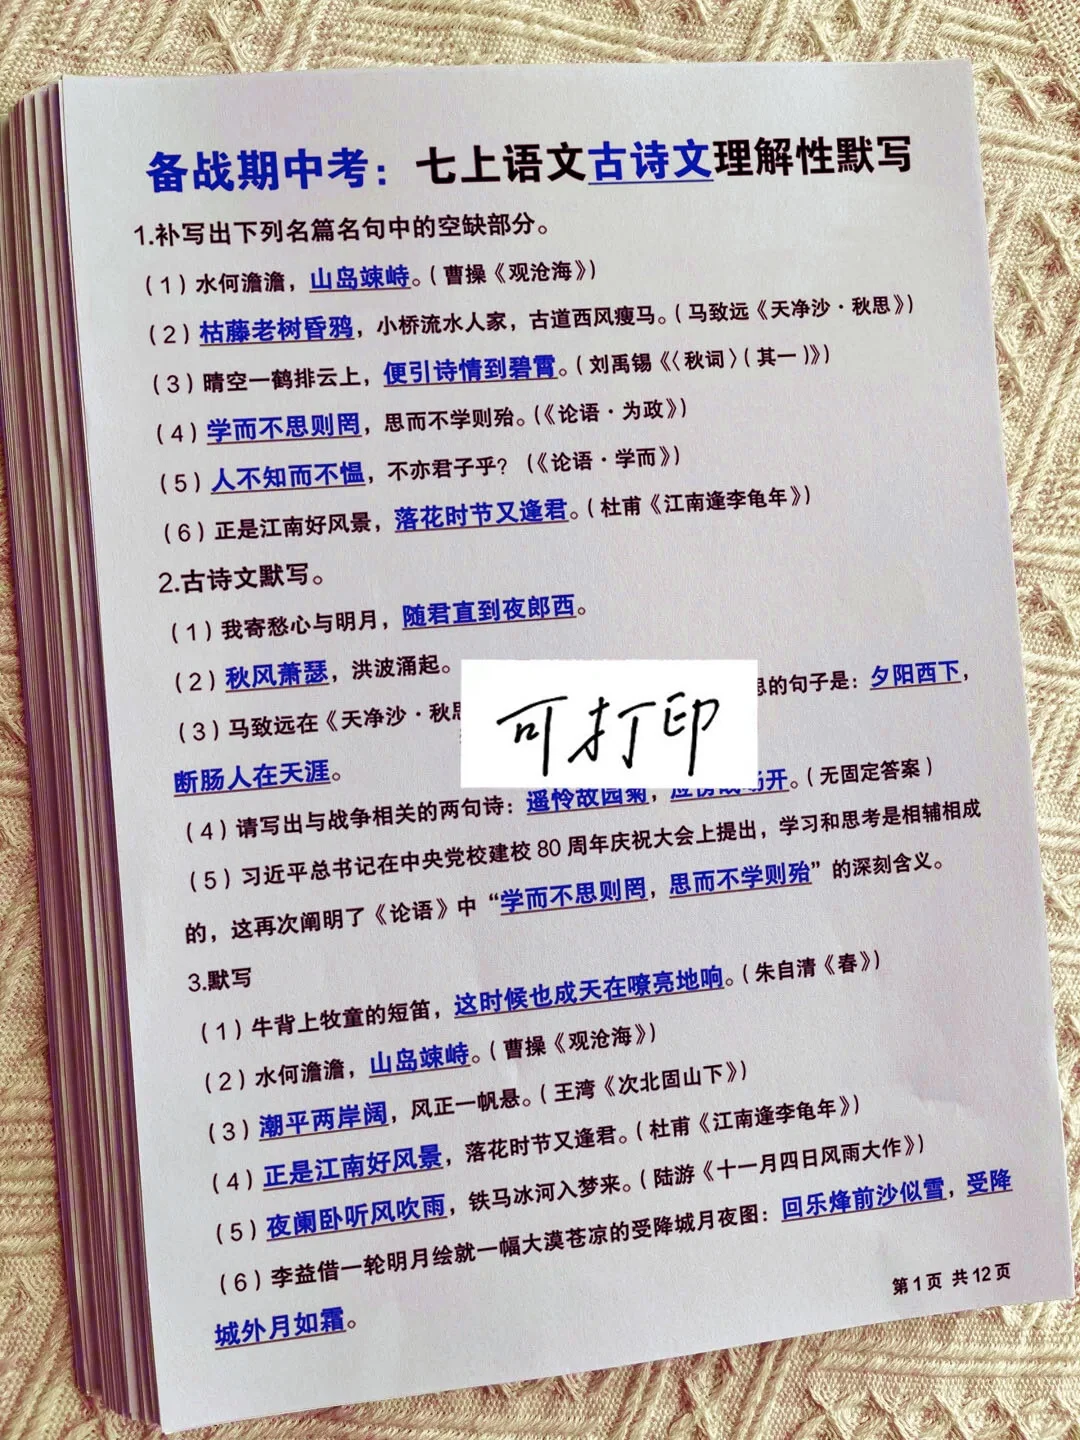 备战期中考：七上语文古诗文理解性默写
1.补写出下列名篇名句中的空缺部分。
（1）水何澹澹，山岛竦峙。（曹操《观沧海》）
（2）枯藤老树昏鸦，小桥流水人家，古道西风瘦马。（马致远《天净沙·秋思》）
（3）晴空一鹤排云上，便引诗情到碧霄。（刘禹锡《〈秋词〉（其一）》）
（4）学而不思则罔，思而不学则殆。（《论语·为政》）
（5）人不知而不愠，不亦君子乎？（《论语·学而》）
（6）正是江南好风景，落花时节又逢君。（杜甫《江南逢李龟年》）
2.古诗文默写。
（1）我寄愁心与明月，随君直到夜郎西。
（2）秋风萧瑟，洪波涌起。
（3）马致远在《天净沙·秋思 的句子是：夕阳西下，
可打印
断肠人在天涯。
（4）请写出与战争相关的两句诗：遥怜故园菊，应傍战场开。（无固定答案）
（5）习近平总书记在中央党校建校80周年庆祝大会上提出，学习和思考是相辅相成
的，这再次阐明了《论语》中“学而不思则罔，思而不学则殆”的深刻含义。
3.默写
（1）牛背上牧童的短笛，这时候也成天在嘹亮地响。（朱自清《春》）
（2）水何澹澹，山岛竦峙。（曹操《观沧海》）
（3）潮平两岸阔，风正一帆悬。（王湾《次北固山下》）
（4）正是江南好风景，落花时节又逢君。（杜甫《江南逢李龟年》）
（5）夜阑卧听风吹雨，铁马冰河入梦来。（陆游《十一月四日风雨大作》）
（6）李益借一轮明月绘就一幅大漠苍凉的受降城月夜图：回乐烽前沙似雪，受降
城外月如霜。
第1页 共12页